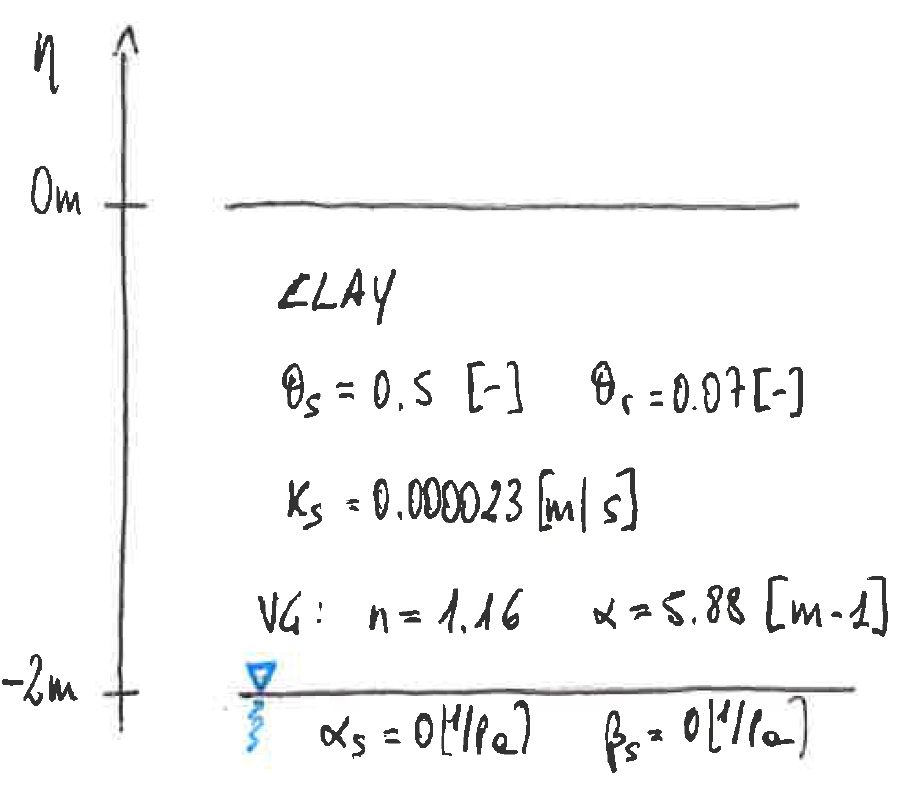 η
0m
CLAY
θs = 0.5 [-] θr = 0.07 [-]
Ks = 0.000023 [m/s]
VG: n = 1.16 α = 5.88 [m-1]
-2m
αs = 0 [1/Pa] βs = 0 [1/Pa]